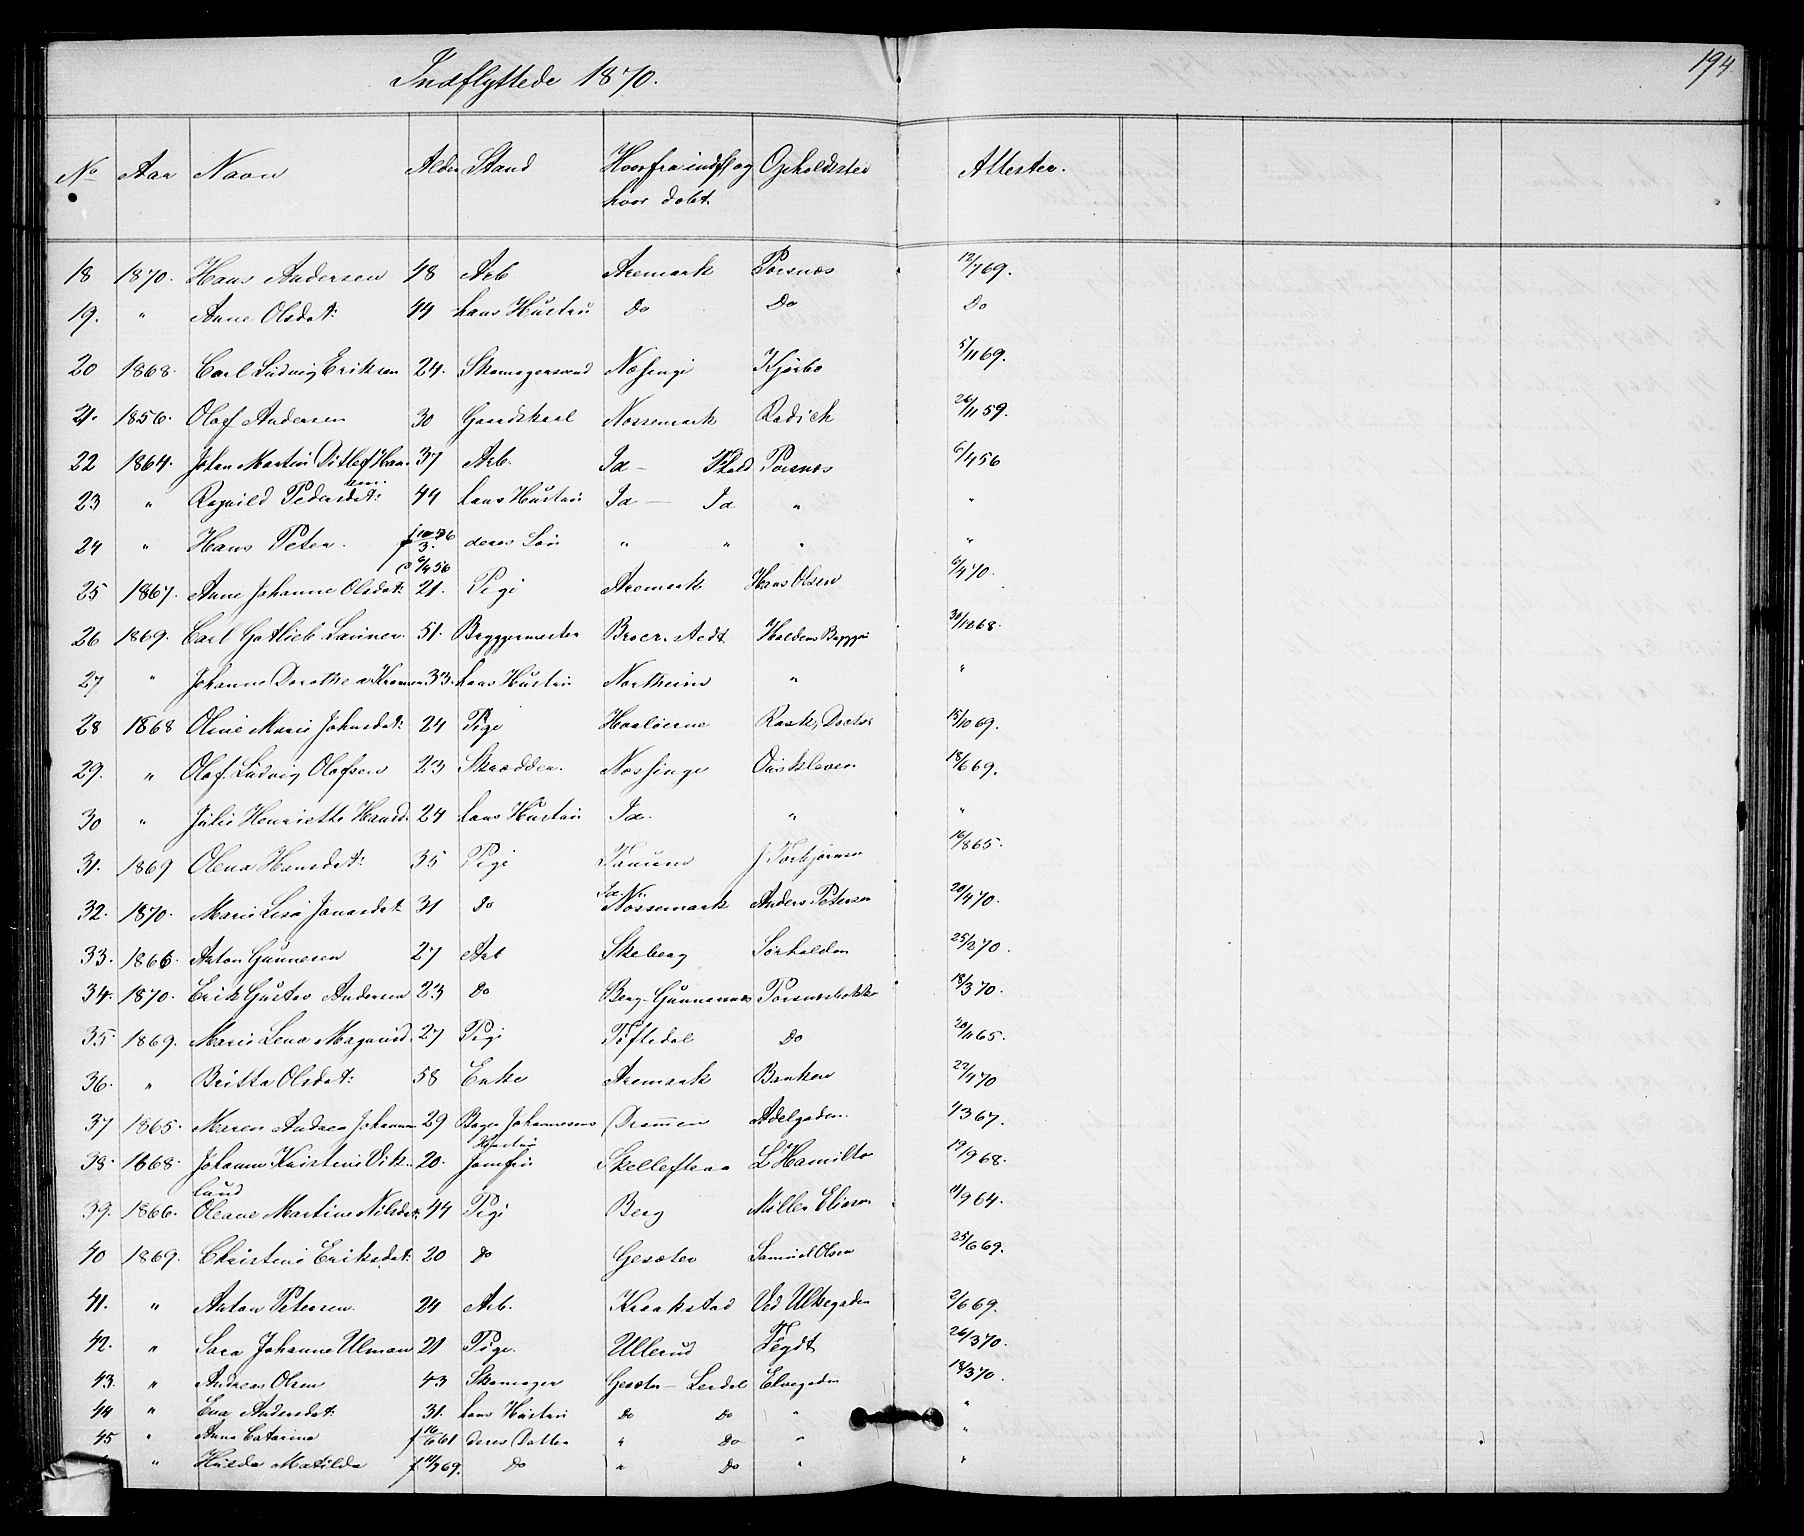 194
Indflyttede 1870.
No Aar Navn Alder Stand Hvorfra indfl og Opholdssted Attester.
hvor døbt
18 1870. Hans Andersen 48 Arb Aremark Porsnæs 12/7 69.
19. " Anne Olsdat: 44 hans Hustru Do Do Do
20 1868. Carl Ludvig Eriksen 24. Skomagersvend Næsinge Kjørbo 5/11 69.
21. 1856. Olaf Andersen 30 Gaardskarl Nøssemark Radich 26/11 59.
22 1864. Johan Martin Ditlef Han 37 Arb. Id – Porsnæs 6/4 56
sen.
23 " Ragnild Pedersdat: 44 hans Hustru Id — Id " "
24 " Hans Peter. deres Søn " " " "
25 1867. Anne Johanne Olsdat: 21. Pige Aremark Hans Olsen 6/4 70.
26 1869. Carl Gotlieb 51. Bryggermester Haldens Bryggri 30/12 68.
27 " Johanne Dorothea 33. hans Hustru Northeim " "
28 1868 Oline Marie Johnsdat: 24 Pige Hvaløerne Rask, Doctor 15/10 69.
29. " Olaf Ludvig Olafsen 23 Skrædder. Næsinge Ouskleven 18/6 69.
30 " Julie Henriette Hansd 24 hans Hustru Id. " "
31. 1869 Olena Hansdat: 35 Pige Tanum J Torbjørnsen 16/8 65.
Id.
32. 1870. Marie Lisa Jonasdat: 31 Do Nøssemark Anders Petersen 20/4 70.
33. 1866. Anton Gunnesen 27 Arb Skeberg Sørhalden 25/2 70.
34. 1870. Erik Gustav Andersen 23 Do Berg – Gunnarsnæs Porsnæsbakke 18/3 70.
35. 1869. Marie Lena Magnusd. 27 Pige Töftedal Do 20/11 65.
36. " Britta Olsdat: 58 Enke Aremark Banken 22/4 70
37 1865. Maren Andrea Johannesen 29 Bager Johannesens Drammen Adelgaden. 4/3 67.
Hustru
38. 1868. Johanne Kristine Vik- 20. Jomfru Skellefteaa L Hamilto 19/9 68.
lund
39. 1866. Oleane Martine Nilsdat: 44 Pige Berg Møller Eliasen 11/9 64.
40 1869. Christine Eriksdat: 20 Do Gesæter Samuel Olsen 25/6 69.
41. " Anton Petersen. 24 Arb. Kraakstad Ved Ulkegaden 2/6 69.
42. " Sara Johanne Ulman 21 Pige. Ullerud Tegdt 26/3 70.
43. " Andreas Olsen 43 Skomager Gesæter – Lerdal Elvegaden 18/3 70.
44 " Eva Andersdat: 31. hans Hustru Do Do " "
45 " Anna Catarina f 16/6 61 deres Datter " Do " "
" Hulda Matilda f 11/7 69. Do " Do " "